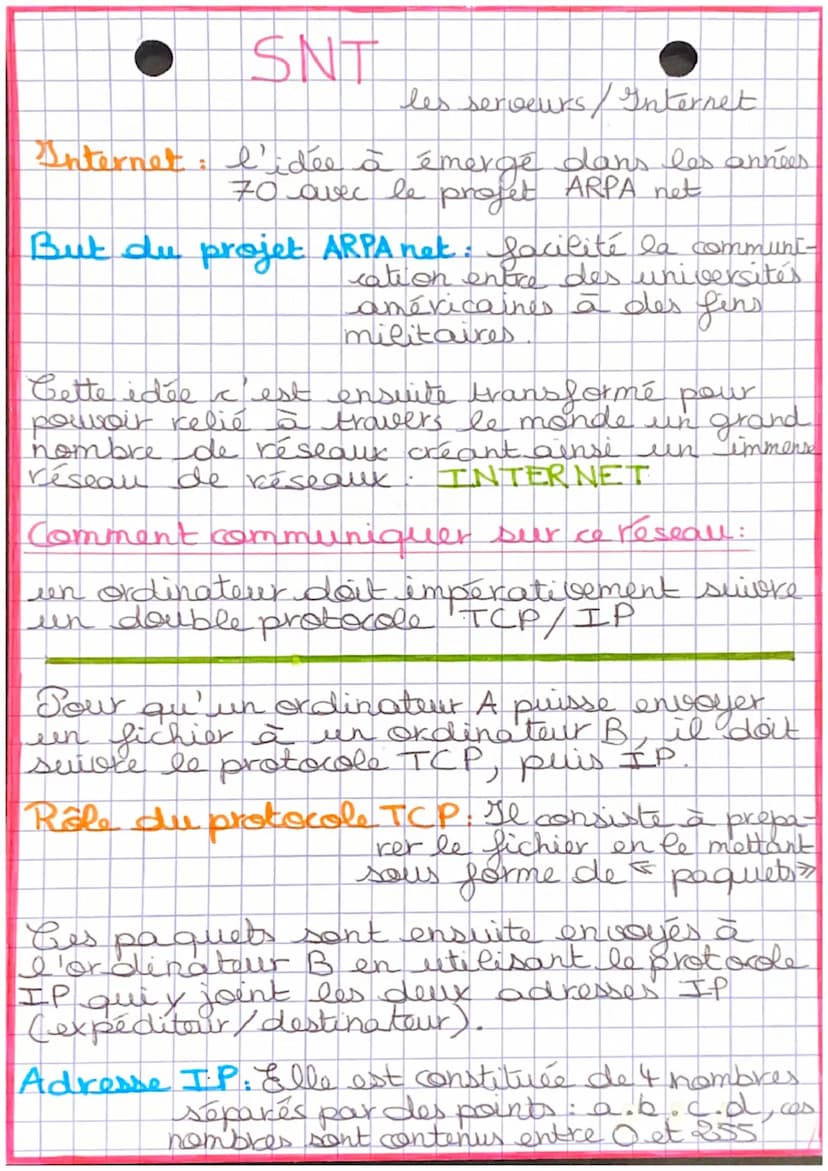 SNT
les serveurs / Internet
Internet : l'idée à émergé dans les années
70 avec le projet ARPA net
But du projet ARPA net : facilité la communi-
cation entre des universités
américaines à des fins
militaires.
Cette idée c'est ensuite transformé pour
pouvoir relié à travers le monde un grand
nombre de réseaux créant ainsi un immense
réseau de réseaux : INTERNET
Comment communiquer sur ce réseau :
un ordinateur doit impérativement suivre
un double protocole TCP/IP
Pour qu'un ordinateur A puisse envoyer
un fichier à un ordinateur B, il doit
suivre le protocole TCP, puis IP.
Rôle du protocole TCP : Il consiste à prépa-
rer le fichier en le mettant
sous forme de « paquets »
Ces paquets sont ensuite envoyés à
l'ordinateur B en utilisant le protocole
IP qui y joint les deux adresses IP
(expéditeur/destinateur).
Adresse I.P : Elle est constituée de 4 nombres
séparés par des points : a.b.c.d, ces
nombres sont contenus entre 0 et 255